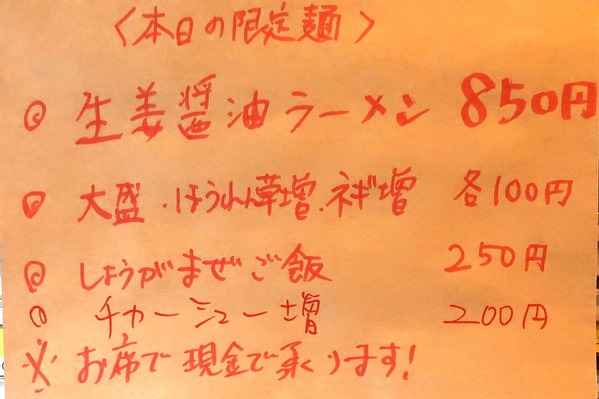 〈本日の限定麺〉
◎ 生姜醤油ラーメン 850円
◎ 大盛・ほうれん草増・ネギ増 各100円
◎ しょうがまぜご飯 250円
○ チャーシュー増 200円
※ お席で現金で承ります!